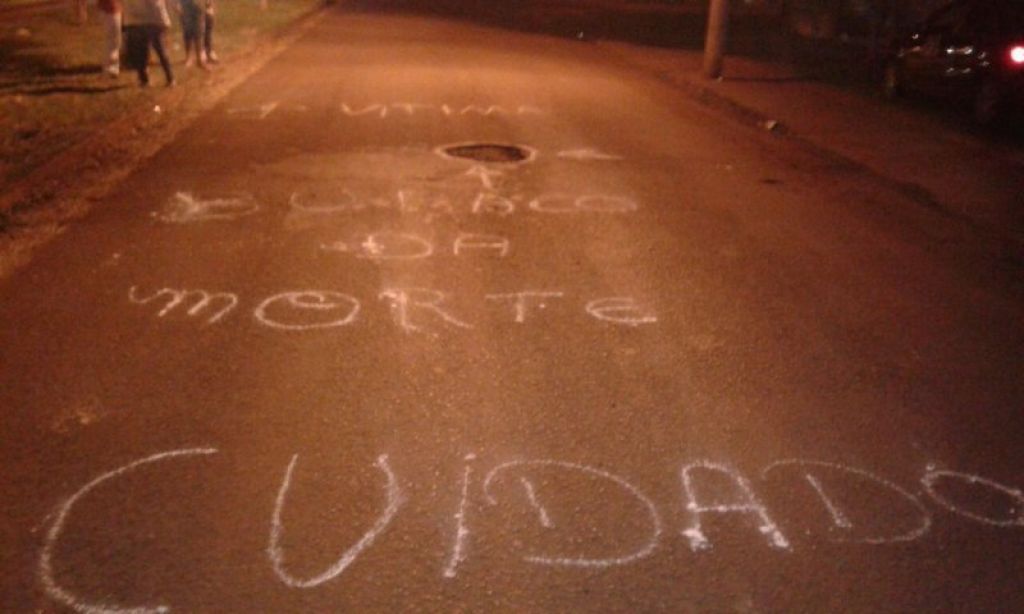 VITIMA
BURACO
DA
MORTE
CUIDADO